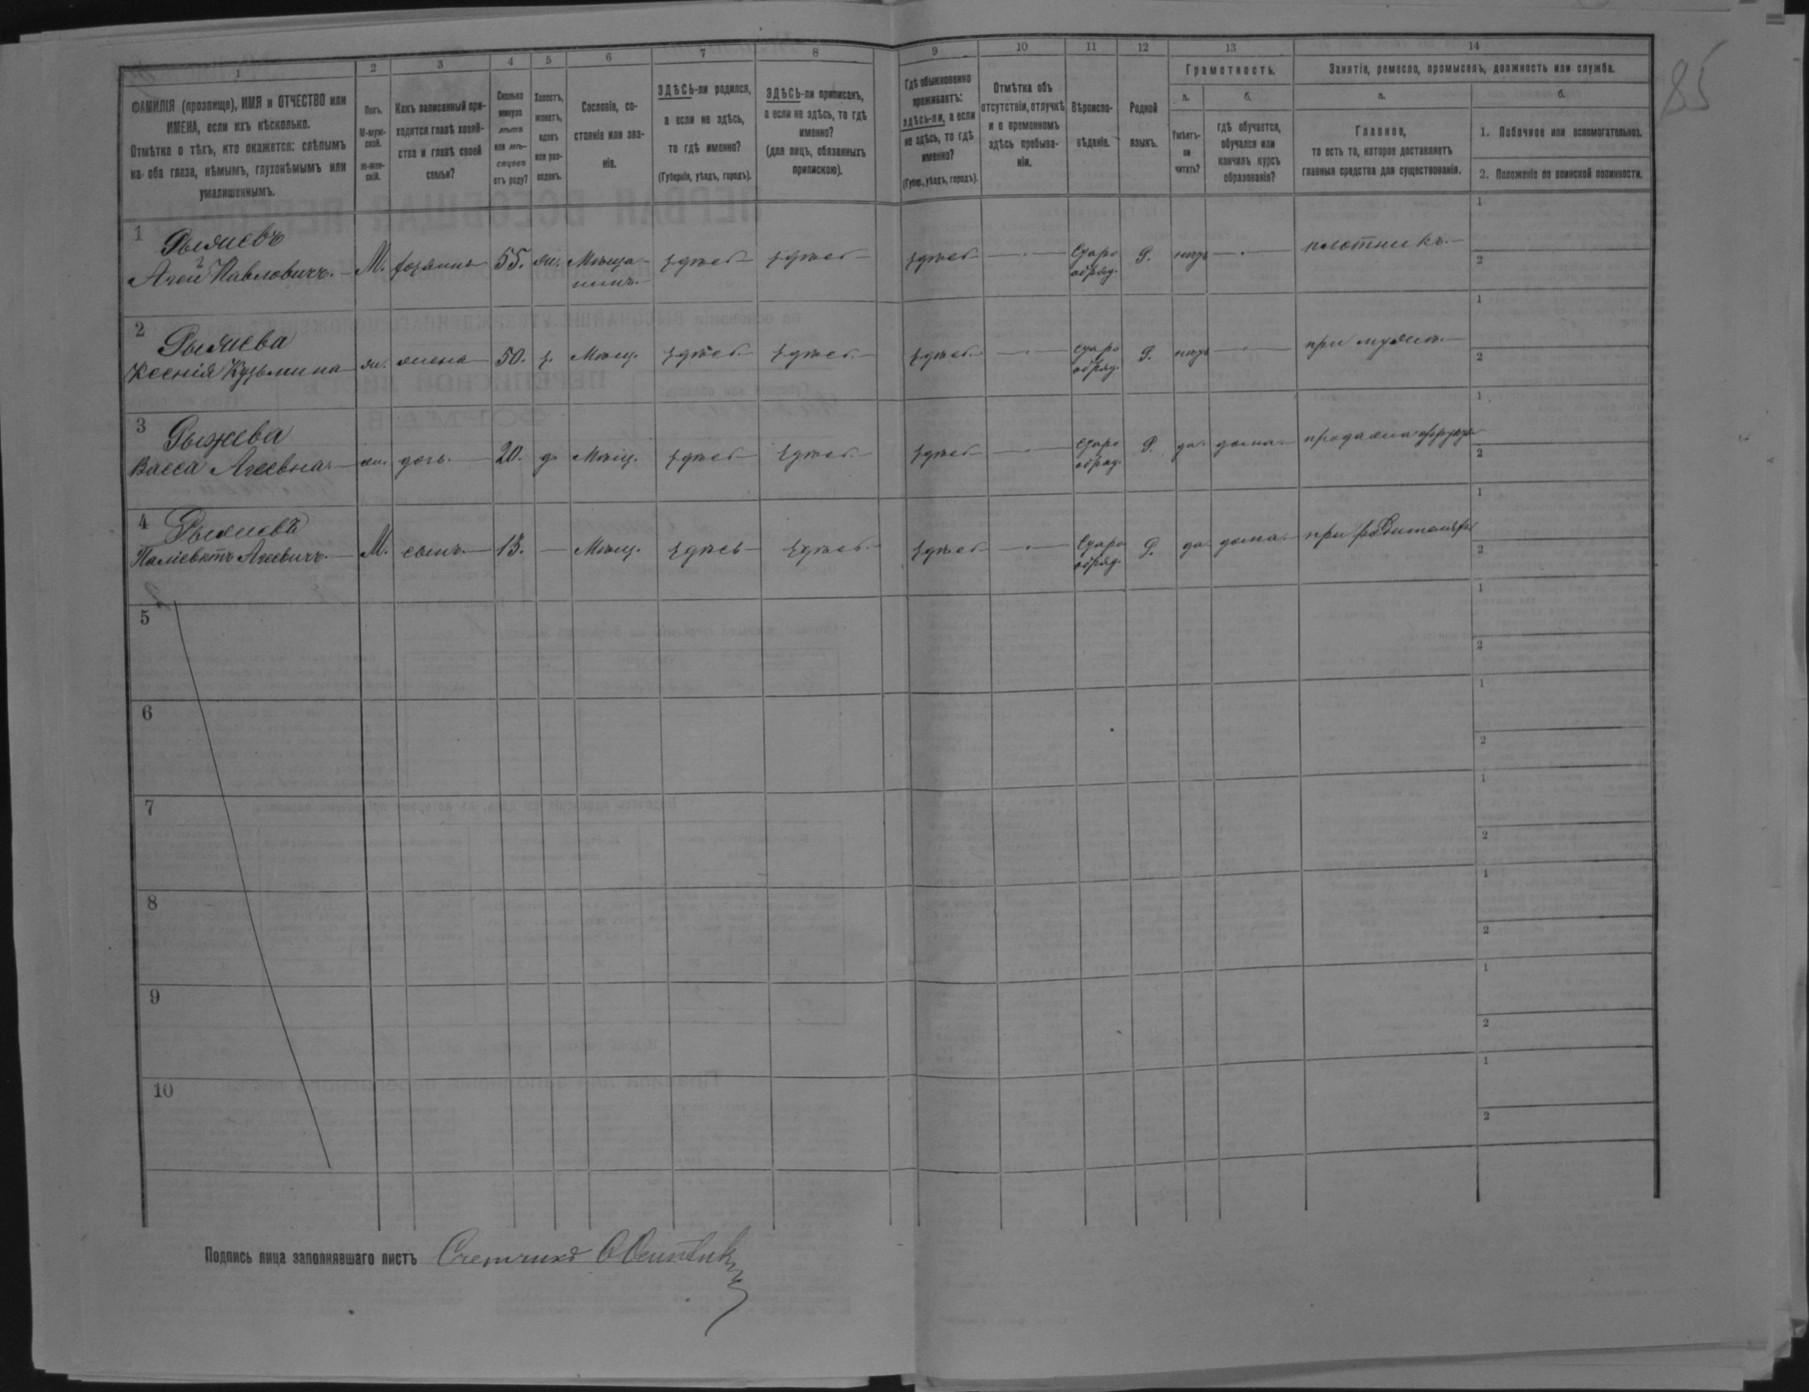 85
1 2 3 4 5 6 7 8 9 10 11 12 13 14
ФАМИЛІЯ (прозвище), ИМЯ и ОТЧЕСТВО или
ИМЕНА, если ихъ нѣсколько.
Отмѣтка о тѣхъ, кто окажется: слѣпымъ
на оба глаза, нѣмымъ, глухонѣмымъ или
умалишеннымъ.
Полъ.
М-муж-
ской.
Ж-жен-
скій.
Какъ записанный при-
ходится главѣ хозяй-
ства и главѣ своей
семьи?
Сколько
минуло
лѣтъ
или мѣ-
сяцевъ
отъ роду?
Холостъ,
женатъ,
вдовъ
или раз-
веденъ.
Сословіе, со-
стояніе или зва-
ніе.
ЗДѢСЬ-ли родился,
а если не здѣсь,
то гдѣ именно?
(Губернія, уѣздъ, городъ).
ЗДѢСЬ-ли приписанъ,
а если не здѣсь, то гдѣ
именно?
(для лицъ, обязанныхъ
припискою).
Гдѣ обыкновенно
проживаетъ:
здѣсь-ли, а если
не здѣсь, то гдѣ
именно?
(Губер., уѣздъ, городъ).
Отмѣтка объ
отсутствіи, отлучкѣ
и о временномъ
здѣсь пребыва-
ніи.
Вѣроиспо-
вѣданіе.
Родной
языкъ.
Грамотность.
а. б.
Умѣетъ-
ли
читать?
гдѣ обучается,
обучался или
кончилъ курсъ
образованія?
Занятіе, ремесло, промыселъ, должность или служба.
а. б.
Главное,
то есть то, которое доставляетъ
главныя средства для существованія.
1. Побочное или вспомогательное.
2. Положеніе по воинской повинности.
1 Рыжевъ
Агей Павловичъ. М. хозяинъ 55. жн. Мѣща-
нинъ. здѣсь здѣсь здѣсь — Старо
обряд. Р. нѣтъ — плотникъ. 1
2
2 Рыжева
Ксенія Кузьмина жн. жена 50. з. Мѣщ. здѣсь здѣсь здѣсь — Старо
обряд. Р. нѣтъ — при мужѣ. 1
2
3 Рыжева
Васса Агеевна. жн. дочь. 20. д. Мѣщ. здѣсь здѣсь здѣсь — Старо
обряд. Р. да дома продажа 1
2
4 Рыжевъ
Агеевичъ. М. сынъ. 13. — Мѣщ. здѣсь здѣсь здѣсь — Старо
обряд. Р. да дома при родителяхъ 1
2
5 1
2
6 1
2
7 1
2
8 1
2
9 1
2
10 1
2
Подпись лица заполнявшаго листъ Счетчикъ